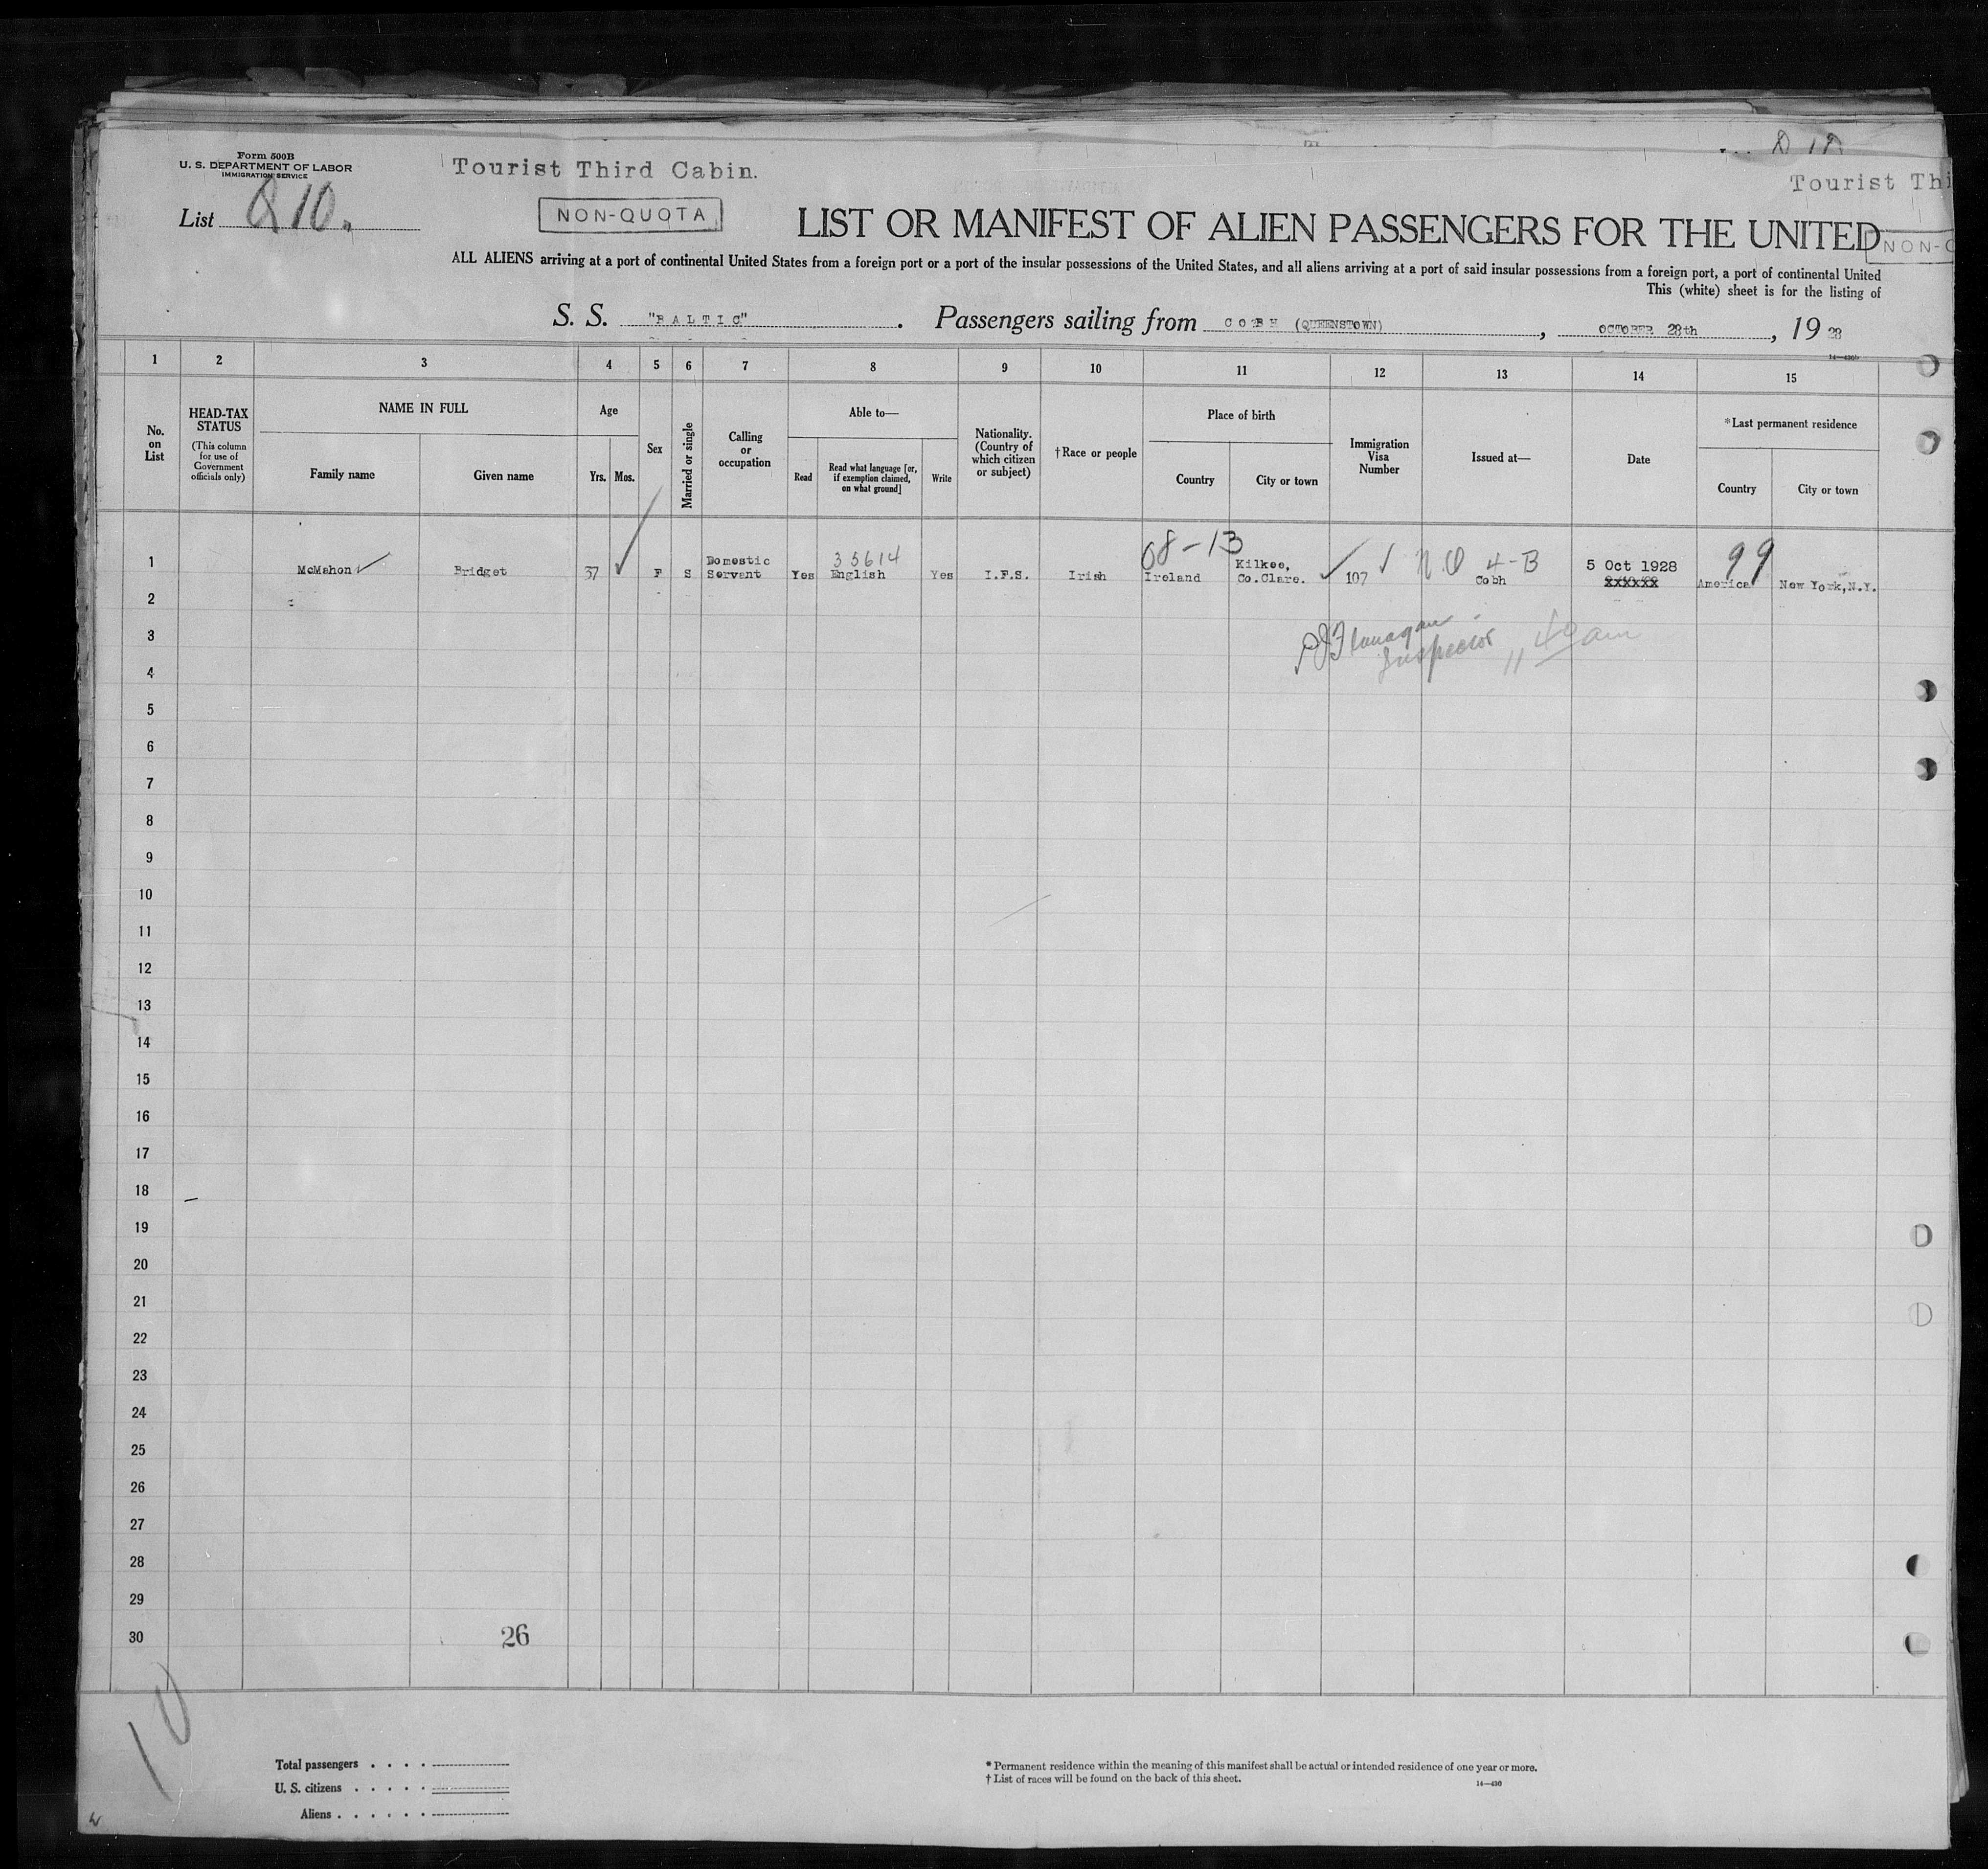 Form 500B
U. S. DEPARTMENT OF LABOR
IMMIGRATION SERVICE
Tourist Third Cabin.
Tourist Thi
List Q 10.
NON-QUOTA
LIST OR MANIFEST OF ALIEN PASSENGERS FOR THE UNITED
NON-Q
ALL ALIENS arriving at a port of continental United States from a foreign port or a port of the insular possessions of the United States, and all aliens arriving at a port of said insular possessions from a foreign port, a port of continental United
This (white) sheet is for the listing of
S. S. "BALTIC". Passengers sailing from COBH (QUEENSTOWN), OCTOBER 28th, 19 28
1 2 3 4 5 6 7 8 9 10 11 12 13 14 15
No. on List
HEAD-TAX STATUS
(This column for use of Government officials only)
NAME IN FULL
Family name Given name
Age
Yrs. Mos.
Sex
Married or single
Calling or occupation
Able to—
Read
Read what language [or, if exemption claimed, on what ground]
Write
Nationality. (Country of which citizen or subject)
†Race or people
Place of birth
Country City or town
Immigration Visa Number
Issued at—
Date
*Last permanent residence
Country City or town
1 McMahon Bridget 37 F S Domestic Servant Yes 35614 English Yes I.F.S. Irish 08-13 Ireland Kilkee, Co.Clare. 107 N.Q 4-B Cobh 5 Oct 1928 xxxxxx 99 America New York, N.Y.
2
3 Flanagan
Inspector 11 40 am
4
5
6
7
8
9
10
11
12
13
14
15
16
17
18
19
20
21
22
23
24
25
26
27
28
29
30
26
10
Total passengers
U. S. citizens
Aliens
* Permanent residence within the meaning of this manifest shall be actual or intended residence of one year or more.
† List of races will be found on the back of this sheet.
14—430